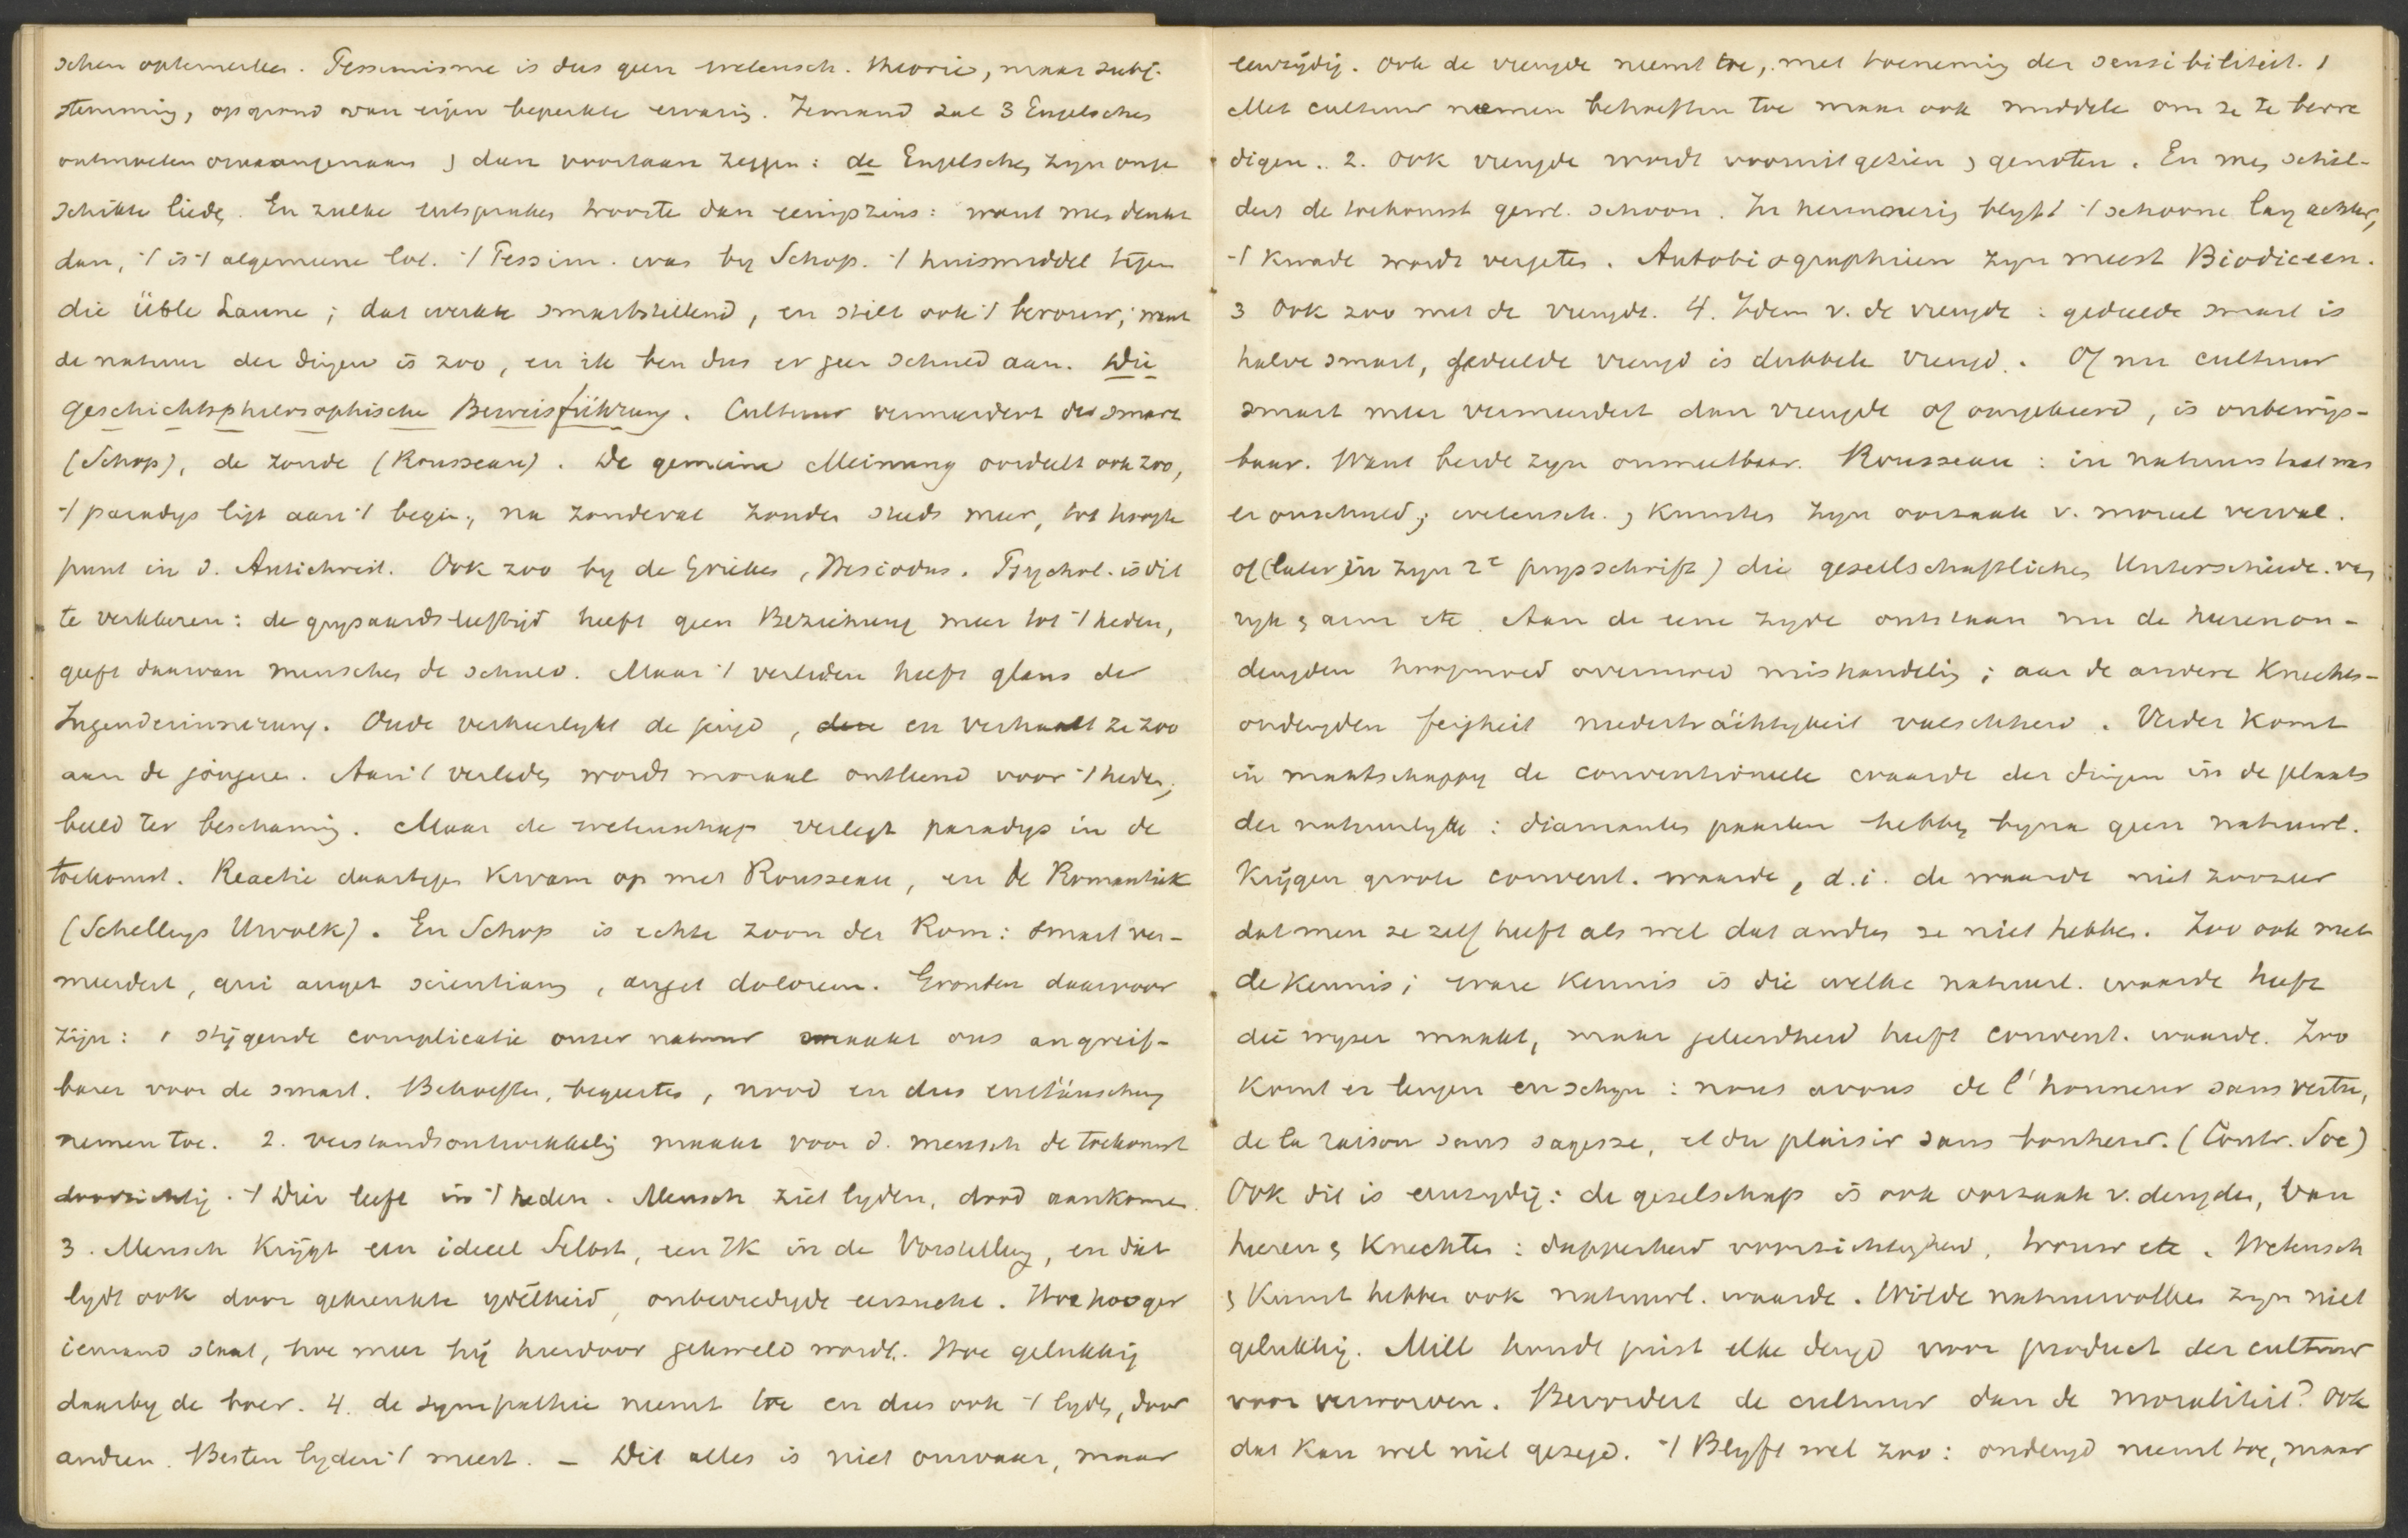 schen opkomelkes. Pessimisme is dus geen wetensch. theorie, maar subj.
stemming, op grond van eigen beperkte ervaring. Iemand zal 3 Engelschen
ontmoeten onaangenaam & dan voortaan zeggen: de Engelschen zijn onge
schikte lieden. En zulke uitspraken troosten dan eenigszins: want men denkt
dan, 't is 't algemeene lot. 't Pessim. was by Schop. 't huismiddel tegen
die üble Laune; dat werkte smartstillend, en stilt ook 't berouw; want
de natuur der dingen is zoo, en ik ben dus er geen schuld aan. Die
geschichtsphilosophische Beweisführung. Cultuur vermeerdert de smart
(Schop), de zonde (Rousseau). De gemeine Meinung oordeelt ook zoo,
't paradys ligt aan 't begin, na zondeval zonde steeds meer, tot hoogte
punt in d. Antichrist. Ook zoo by de Grieken, Hesiodus. Psychol. is dit
te verklaren: de grysaardsleeftijd heeft geen Beziehung meer tot 't heden,
geeft daarvan menschen de schuld. Maar 't verleden heeft glans der
Jugenderinnerung. Oude verheerlykt de jeugd, en verhaalt ze zoo
aan de jongeren. Aan 't verleden wordt moraal ontleend voor 't heden,
beeld ter beschaming. Maar de wetenschap verlegt paradys in de
toekomst. Reactie daartegen kwam op met Rousseau, en de Romantiek
(Schellings Urvolk). En Schop is echte zoon der Rom: smart ver-
meerdert, qui auget scientiam, auget dolorem. Gronden daarvoor
zijn: 1 stijgende complicatie onzer natuur maakt ons angreif-
barer voor de smart. Behoeften, begeertes, nood en dus enttäuschung
nemen toe. 2. verstandsontwikkeling maakt voor d. mensch de toekomst
doorzichtig. 't Dier leeft in 't heden. Mensch ziet lyden, dood aankomen.
3. Mensch krijgt een ideeel Selbst, een IK in de Vorstellung, en dat
lydt ook door gekrenkte ydelheid, onbevredigde eerzucht. Hoe hooger
iemand staat, hoe meer hij hierdoor gekweld wordt. Hoe gelukkig
daarby de boer. 4. de sympathie neemt toe en dus ook 't lyden, door
andren. Besten lyden 't meest. – Dit alles is niet onwaar, maar
eenzijdig. Ook de vreugde neemt toe, met toeneming der sensibiliteit. 1
Met cultuur nemen behoeften toe maar ook middelen om ze te bevre
digen. 2. Ook vreugde wordt vooruitgezien & genoten. En men schil-
dert de toekomst gewl. schoon. In herinnering blyft 't schoone lang achter,
't Kwade wordt vergeten. Autobiographieen zyn meest Biodiceen.
3 Ook zoo met de vreugde. 4. Idem v. de vreugde: gedeelde smart is
halve smart, gedeelde vreugd is dubbele vreugd. Of nu cultuur
smart meer vermeerdert dan vreugde of omgekeerd, is onbewijs-
baar. Want beide zyn onmeetbaar. Rousseau: in natuurstaat was
er onschuld; wetensch. & kunsten zyn oorzaak v. moreel verval.
of (later) in zyn 2e prysschrift) die gesellschaftlichen Unterschiede. van
ryk & arm etc. Aan de eene zyde ontstaan nu de heerenon-
deugden hoogmoed overmoed mishandeling; aan de andere Knechts-
ondeugden feigheit niederträchtigkeit valschheid. Verder komt
in maatschappy de conventioneele waarde der dingen in de plaats
der natuurlyke: diamanten paarlen hebben byna geen natuurl.
Krijgen groote convent. waarde, d.i. de waarde niet zoozeer
dat men ze zelf heeft als wel dat andren ze niet hebben. Zoo ook met
de Kennis; ware Kennis is die welke natuurl. waarde heeft
die wyzer maakt, maar geleerdheid heeft convent. waarde. Zoo
komt er leugen en schyn: nous avons de l'honneur sans vertu,
de la raison sans sagesse, et du plaisir sans bonheur. (Contr. Soc)
Ook dit is eenzydig: de gezelschap is ook oorzaak v. deugden, van
heeren & Knechten: dapperheid voorzichtigheid, trouw etc. Wetensch
& Kunst hebben ook natuurl. waarde. Wilde natuurvolken zyn niet
gelukkig. Mill houdt juist elke deugd voor product der cultuur
voor verworven. Bevordert de cultuur dan de moraliteit? Ook
dat kan wel niet gezegd. 't Blyft wel zoo: ondeugd neemt toe, maar